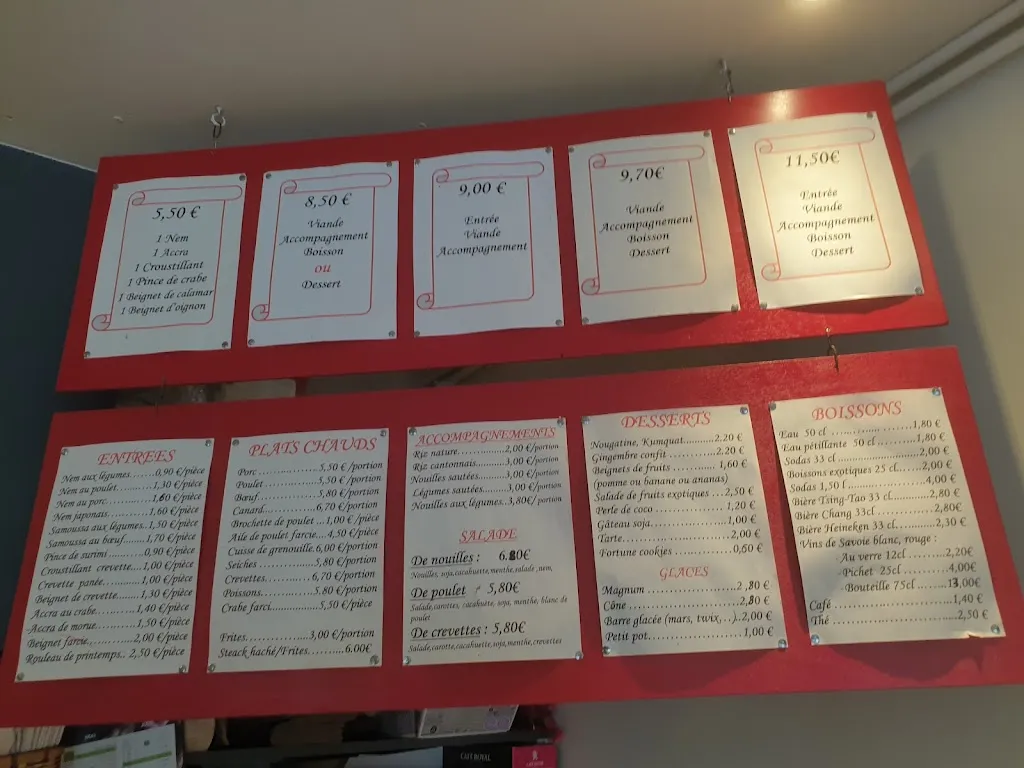 5,50 €
1 Nem
1 Accra
1 Croustillant
1 Pince de crabe
1 Beignet de calamar
1 Beignet d'oignon
8,50 €
Viande
Accompagnement
Boisson
ou
Dessert
9,00 €
Entrée
Viande
Accompagnement
9,70€
Viande
Accompagnement
Boisson
Dessert
11,50€
Entrée
Viande
Accompagnement
Boisson
Dessert
ENTREES
Nem aux légumes......0,90 €/pièce
Nem au poulet..........1,30 €/pièce
Nem au porc............1,60 €/pièce
Nem japonais...........1,60 €/pièce
Samoussa aux légumes..1,50 €/pièce
Samoussa au bœuf......1,70 €/pièce
Pince de surimi..........0,90 €/pièce
Croustillant crevette....1,00 €/pièce
Crevette panée..........1,00 €/pièce
Beignet de crevette......1,30 €/pièce
Accra au crabe..........1,40 €/pièce
-Accra de morue.........1,50 €/pièce
Beignet farcie............2,00 €/pièce
Rouleau de printemps.. 2,50 €/pièce
PLATS CHAUDS
Porc ..................5,50 €/portion
Poulet ................5,50 €/portion
Bœuf..................5,80 €/portion
Canard................6,70 €/portion
Brochette de poulet ...1,00 €/pièce
Aile de poulet farcie....4,50 €/pièce
Cuisse de grenouille.6,00 €/portion
Seiches ...............5,80 €/portion
Crevettes..............6,70 €/portion
Poissons...............5,80 €/portion
Crabe farci..............5,50 €/pièce
Frites..................3,00 €/portion
Steack haché/Frites.........6.00€
ACCOMPAGNEMENTS
Riz nature..............2,00 €/portion
Riz cantonnais..........3,00 €/portion
Nouilles sautées.........3,00 €/portion
Légumes sautées........3,00 €/portion
Nouilles aux légumes..3,80€/ portion
SALADE
De nouilles : 6.80€
Nouilles, soja,cacahuète,menthe,salade ,nem,
De poulet : 5,80€
Salade,carottes, cacahuète, soja, menthe, blanc de
poulet
De crevettes : 5,80€
Salade,carotte,cacahuette,soja,menthe,crevettes
DESSERTS
Nougatine, Kumquat...........2.20 €
Gingembre confit ..............2.20 €
Beignets de fruits ............ 1,60 €
(pomme ou banane ou ananas)
Salade de fruits exotiques ...2,50 €
Perle de coco ...................1,20 €
Gâteau soja.....................1,00 €
Tarte.............................2,00 €
Fortune cookies ................0,50 €
GLACES
Magnum ......................2 ,80 €
Cône ..........................2,80 €
Barre glacée (mars, twix,...).2,00 €
Petit pot........................1,00 €
BOISSONS
Eau 50 cl ....................1,80 €
Eau pétillante 50 cl..........1,80 €
Sodas 33 cl ....................2,00 €
Boissons exotiques 25 cl....2,00 €
Sodas 1,50 l....................4,00 €
Bière Tsing-Tao 33 cl........2,80 €
Bière Chang 33cl.............2,80€
Bière Heineken 33 cl........2,30 €
Vins de Savoie blanc, rouge :
-Au verre 12cl .........2,20€
-Pichet 25cl ...........4,00€
-Bouteille 75cl ........13,00€
Café.............................1,40 €
Thé .............................2,50 €
CAFÉ ROYAL